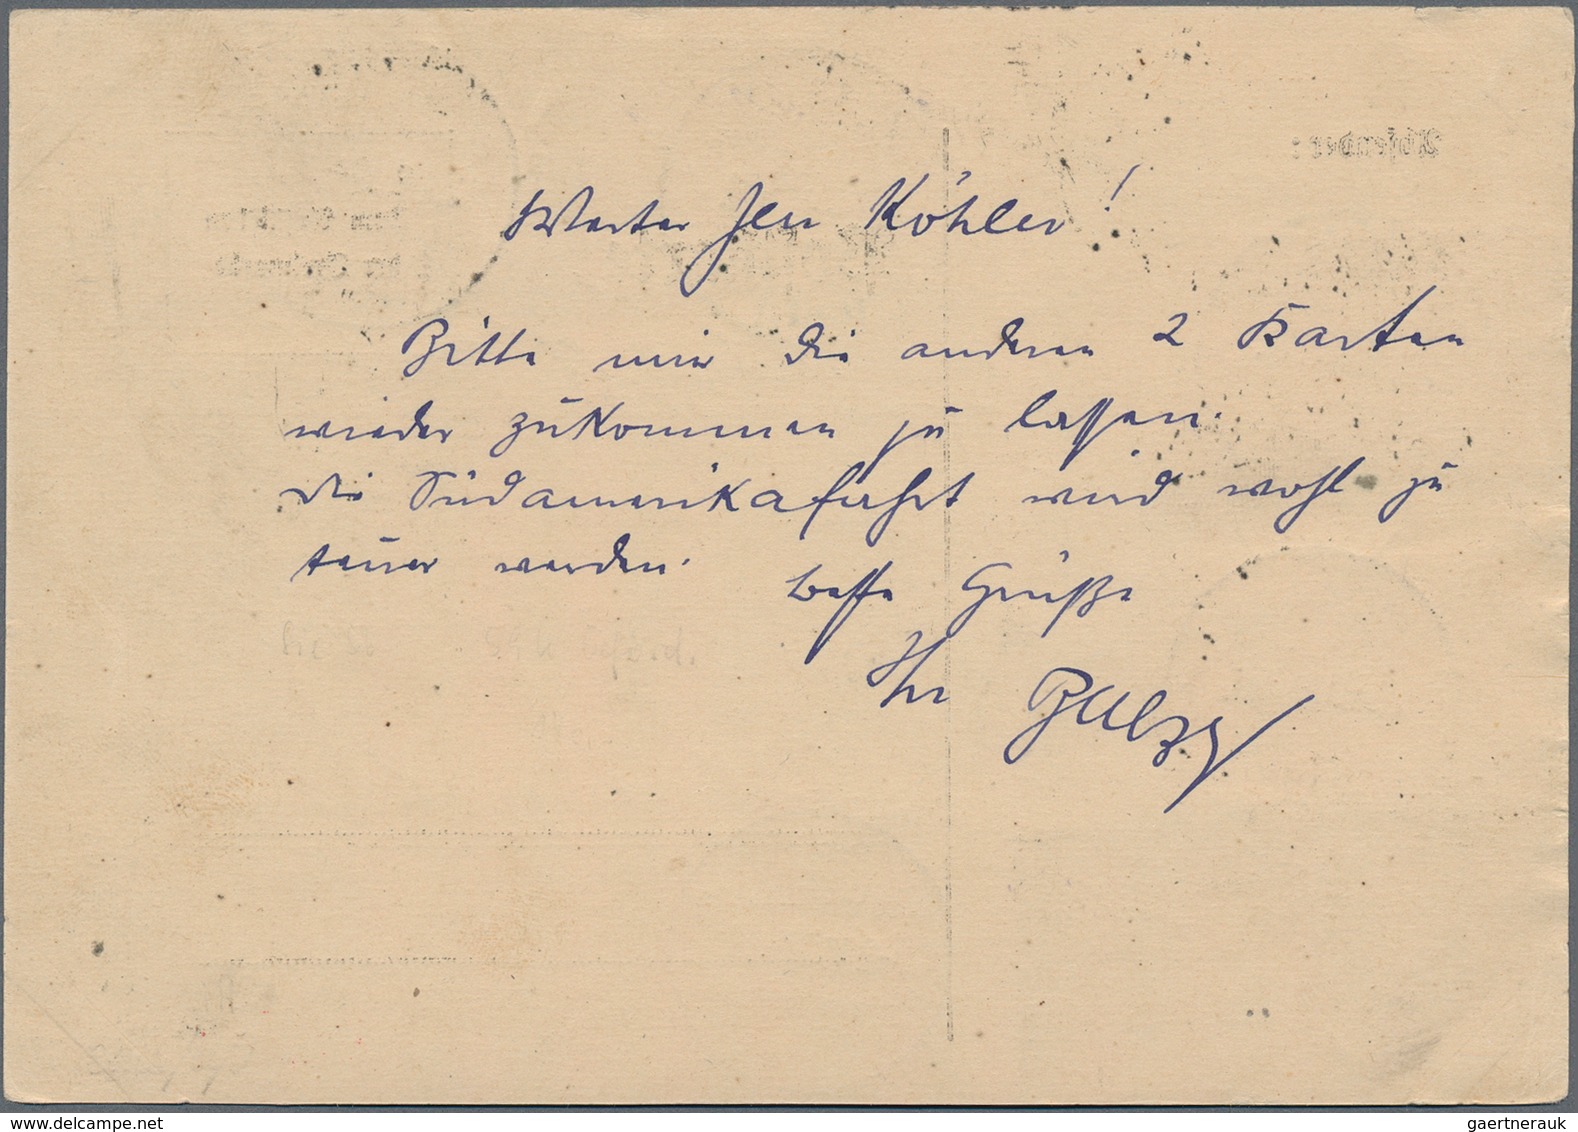 Werter Herr Köhler!
Bitte mir die anderen 2 Karten
wieder zukommen zu lassen.
die Südamerikafahrt wird wohl zu
teuer werden.
beste Grüße
Ihr
Absender:
www.delcampe.net
gaertnerauk